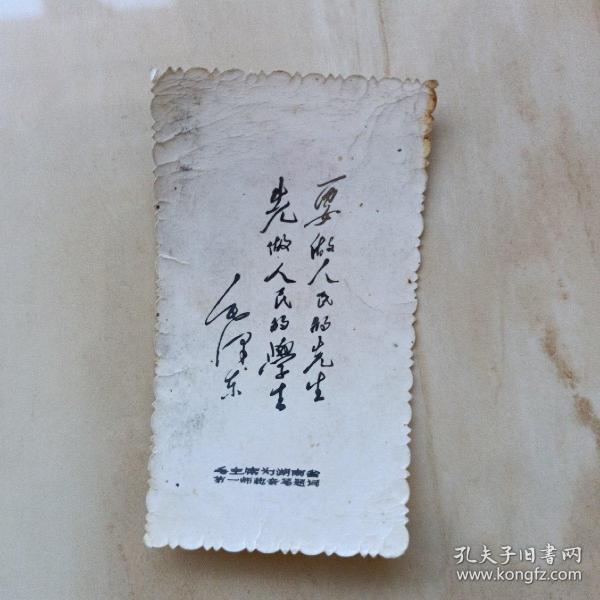 要做人民的先生
先做人民的學生
毛泽东
毛主席为湖南省
第一师范亲笔题词
孔夫子旧书网
www.kongfz.com